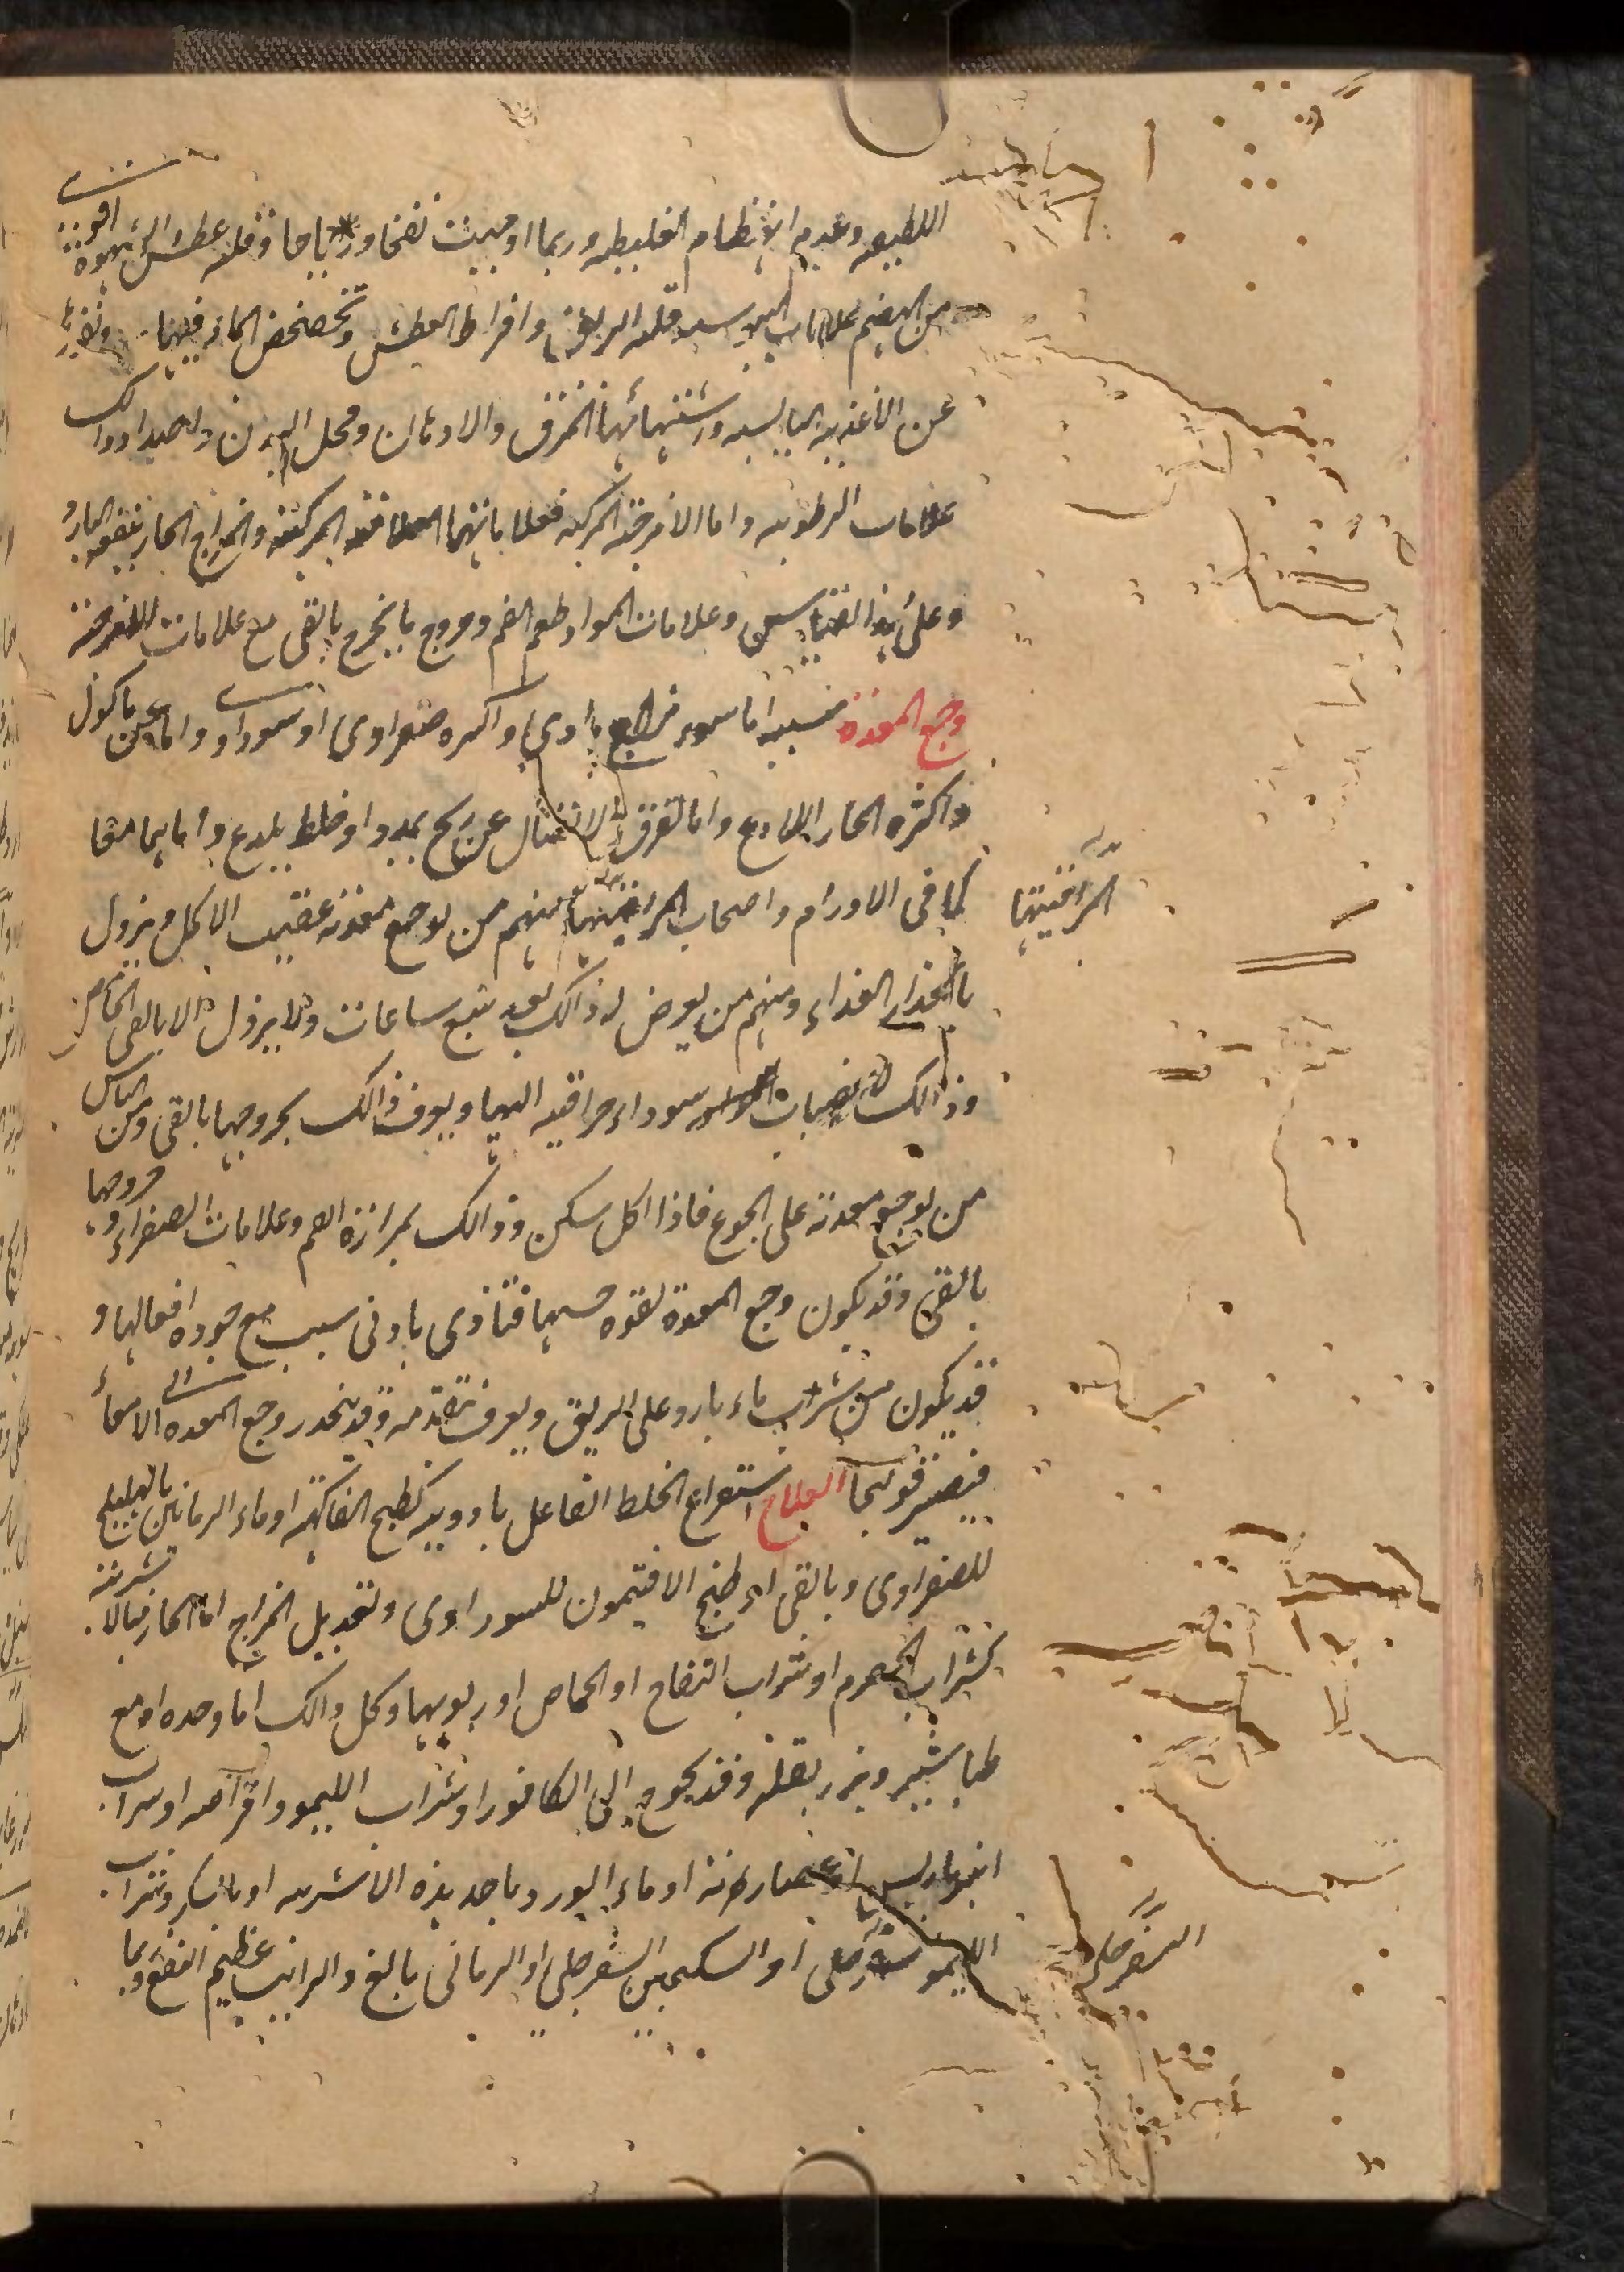 اللطيفه وعدم الانهظام الغليظه وربما اوجبت نفخا ورياحا وقله عطش والشهوة اقوى
من الهضم علامات اليبوسه قله الريق وافراط العطش وتخضخض الماء فيها ونفرتها
عن الاغذيه اليابسه واشتهائها المرق والادهان ومحل البدن واصداد ذالك
علامات الرطوبه واما الامزجة المركبه فعلاماتها العلامة المركبة والمزاج الحار ينفعه البارد
وعلى هذا القياس وعلامات المواد طعم الفم وخروج ما يخرج بالقى مع علامات الامزجة
وجع المعدة سببه اما سوء مزاج مادى واكثره صفراوى او سوداوى واما عن ماكول
واكثره الحار اللادع واما تفرق الاتصال عن ريح يمدد او خلط يلدع واما هما معا
كما فى الاورام واصحاب المراقيتها منهم من يوجع معدته عقيب الاكل ويزول
المراقيتها
بانحدار الغذاء ومنهم من يعرض له ذالك بعد تبع ساعات ولا يزول الا بالقى الحامض
وذالك لانصباب سوداء مراقيه اليها ويعرف ذالك بخروجها بالقى ومن الناس
من يوجع معدته على الجوع فاذا اكل سكن وذالك بمرارة الفم وعلامات الصفراء وخروجها
بالقى وقد يكون وجع المعدة لقوه حسها فتتاذى بادنى سبب مع جوده افعالها و
قد يكون من شراب ماء بارد على الريق ويعرف بتقدمه وقد ينحدر وجع المعده الى الامعاء
فيصير قولنجا العلاج استفراغ الخلط الفاعل بادويه كطبخ الفاكهه او ماء الرمانين بالهليلج
للصفراوى وبالقى او طبخ الافتيمون للسوداوى وتعديل المزاج اما الحار فبالاشربه
كشراب الحصرم او شراب التفاح او الحماض او ربوبها وكل ذالك اما وحده او مع
طباشير وبزر بقله وقد يحوج الى الكافور او شراب الليمو واقراصه او شراب
انبرباريس او عصارته او ماء الورد باحد هذه الاشربه او بالسكر وشراب
الليمو سفرجلى او السكنجبين السفرجلى او الرمانى بالغ والرائب عظيم النفع وربما
السفرجلى